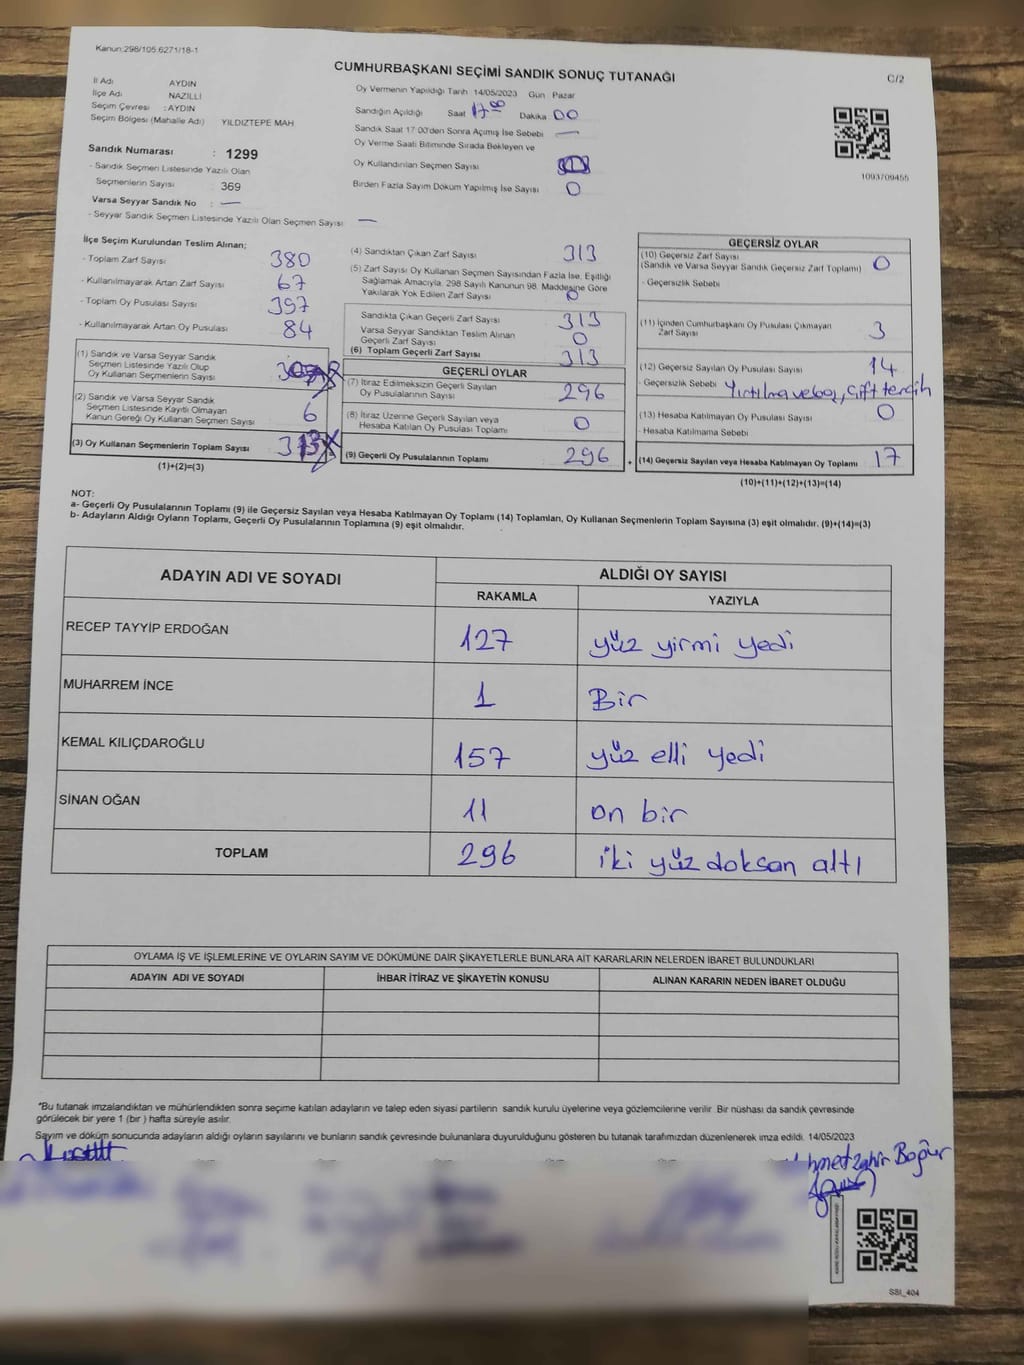 Kanun:298/105.6271/18-1
CUMHURBAŞKANI SEÇİMİ SANDIK SONUÇ TUTANAĞI
C/2
İl Adı AYDIN
İlçe Adı NAZİLLİ
Seçim Çevresi : AYDIN
Seçim Bölgesi (Mahalle Adı) YILDIZTEPE MAH
Sandık Numarası : 1299
- Sandık Seçmen Listesinde Yazılı Olan
Seçmenlerin Sayısı : 369
Varsa Seyyar Sandık No : —
- Seyyar Sandık Seçmen Listesinde Yazılı Olan Seçmen Sayısı : —
Oy Vermenin Yapıldığı Tarih 14/05/2023 Gün Pazar
Sandığın Açıldığı Saat 17:00 Dakika 00
Sandık Saat 17:00'den Sonra Açımış İse Sebebi —
Oy Verme Saati Bitiminde Sırada Bekleyen ve
Oy Kullandırılan Seçmen Sayısı
Birden Fazla Sayım Döküm Yapılmış İse Sayısı 0
1093709455
İlçe Seçim Kurulundan Teslim Alınan;
- Toplam Zarf Sayısı 380
- Kullanılmayarak Artan Zarf Sayısı 67
- Toplam Oy Pusulası Sayısı 397
- Kullanılmayarak Artan Oy Pusulası 84
(1) Sandık ve Varsa Seyyar Sandık
Seçmen Listesinde Yazılı Olup
Oy Kullanan Seçmenlerin Sayısı
(2) Sandık ve Varsa Seyyar Sandık
Seçmen Listesinde Kayıtlı Olmayan
Kanun Gereği Oy Kullanan Seçmen Sayısı 6
(3) Oy Kullanan Seçmenlerin Toplam Sayısı 313
(1)+(2)=(3)
(4) Sandıktan Çıkan Zarf Sayısı 313
(5) Zarf Sayısı Oy Kullanan Seçmen Sayısından Fazla İse, Eşitliği
Sağlamak Amacıyla, 298 Sayılı Kanunun 98. Maddesine Göre
Yakılarak Yok Edilen Zarf Sayısı 0
Sandıkta Çıkan Geçerli Zarf Sayısı 313
Varsa Seyyar Sandıktan Teslim Alınan
Geçerli Zarf Sayısı 0
(6) Toplam Geçerli Zarf Sayısı 313
GEÇERLİ OYLAR
(7) İtiraz Edilmeksizin Geçerli Sayılan
Oy Pusulalarının Sayısı 296
(8) İtiraz Üzerine Geçerli Sayılan veya
Hesaba Katılan Oy Pusulası Toplamı 0
(9) Geçerli Oy Pusulalarının Toplamı 296
+
GEÇERSİZ OYLAR
(10) Geçersiz Zarf Sayısı 0
(Sandık ve Varsa Seyyar Sandık Geçersiz Zarf Toplamı)
- Geçersizlik Sebebi
(11) İçinden Cumhurbaşkanı Oy Pusulası Çıkmayan
Zarf Sayısı 3
(12) Geçersiz Sayılan Oy Pusulası Sayısı 14
- Geçersizlik Sebebi Yırtılma ve boş, çift tercih
(13) Hesaba Katılmayan Oy Pusulası Sayısı 0
- Hesaba Katılmama Sebebi
(14) Geçersiz Sayılan veya Hesaba Katılmayan Oy Toplamı 17
(10)+(11)+(12)+(13)=(14)
NOT:
a- Geçerli Oy Pusulalarının Toplamı (9) ile Geçersiz Sayılan veya Hesaba Katılmayan Oy Toplamı (14) Toplamları, Oy Kullanan Seçmenlerin Toplam Sayısına (3) eşit olmalıdır. (9)+(14)=(3)
b- Adayların Aldığı Oyların Toplamı, Geçerli Oy Pusulalarının Toplamına (9) eşit olmalıdır.
ADAYIN ADI VE SOYADI ALDIĞI OY SAYISI
RAKAMLA YAZIYLA
RECEP TAYYİP ERDOĞAN 127 yüz yirmi yedi
MUHARREM İNCE 1 Bir
KEMAL KILIÇDAROĞLU 157 yüz elli yedi
SİNAN OĞAN 11 on bir
TOPLAM 296 iki yüz doksan altı
OYLAMA İŞ VE İŞLEMLERİNE VE OYLARIN SAYIM VE DÖKÜMÜNE DAİR ŞİKAYETLERLE BUNLARA AİT KARARLARIN NELERDEN İBARET BULUNDUKLARI
ADAYIN ADI VE SOYADI İHBAR İTİRAZ VE ŞİKAYETİN KONUSU ALINAN KARARIN NEDEN İBARET OLDUĞU
*Bu tutanak imzalandıktan ve mühürlendikten sonra seçime katılan adayların ve talep eden siyasi partilerin sandık kurulu üyelerine veya gözlemcilerine verilir. Bir nüshası da sandık çevresinde
görülecek bir yere 1 (bir) hafta süreyle asılır.
Sayım ve döküm sonucunda adayların aldığı oyların sayılarını ve bunların sandık çevresinde bulunanlara duyurulduğunu gösteren bu tutanak tarafımızdan düzenlenerek imza edildi. 14/05/2023
SSI_404